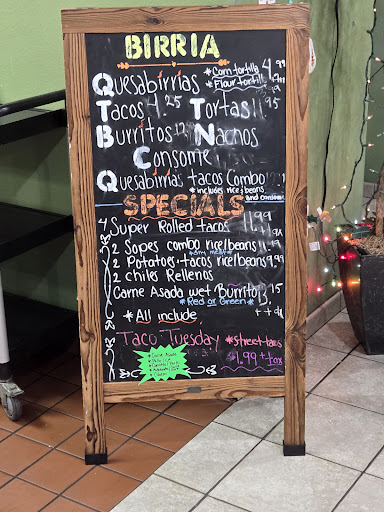 BIRRIA
Quesabirrias *Corn tortilla 4.99
*Flour tortill
Tacos 4.25 Tortas 11.95
Burritos 12 Nachos
Consome
Quesabirrias tacos Combo
*includes rice & beans and consome
SPECIALS
4 Super Rolled tacos 11.99
2 Sopes combo rice/beans 11.99
*any meat*
2 Potatoes tacos rice/beans 9.99
2 Chiles Rellenos
Carne Asada wet Burrito
*Red or Green*
*All include
Taco Tuesday *street tacos
$1.99 + tax